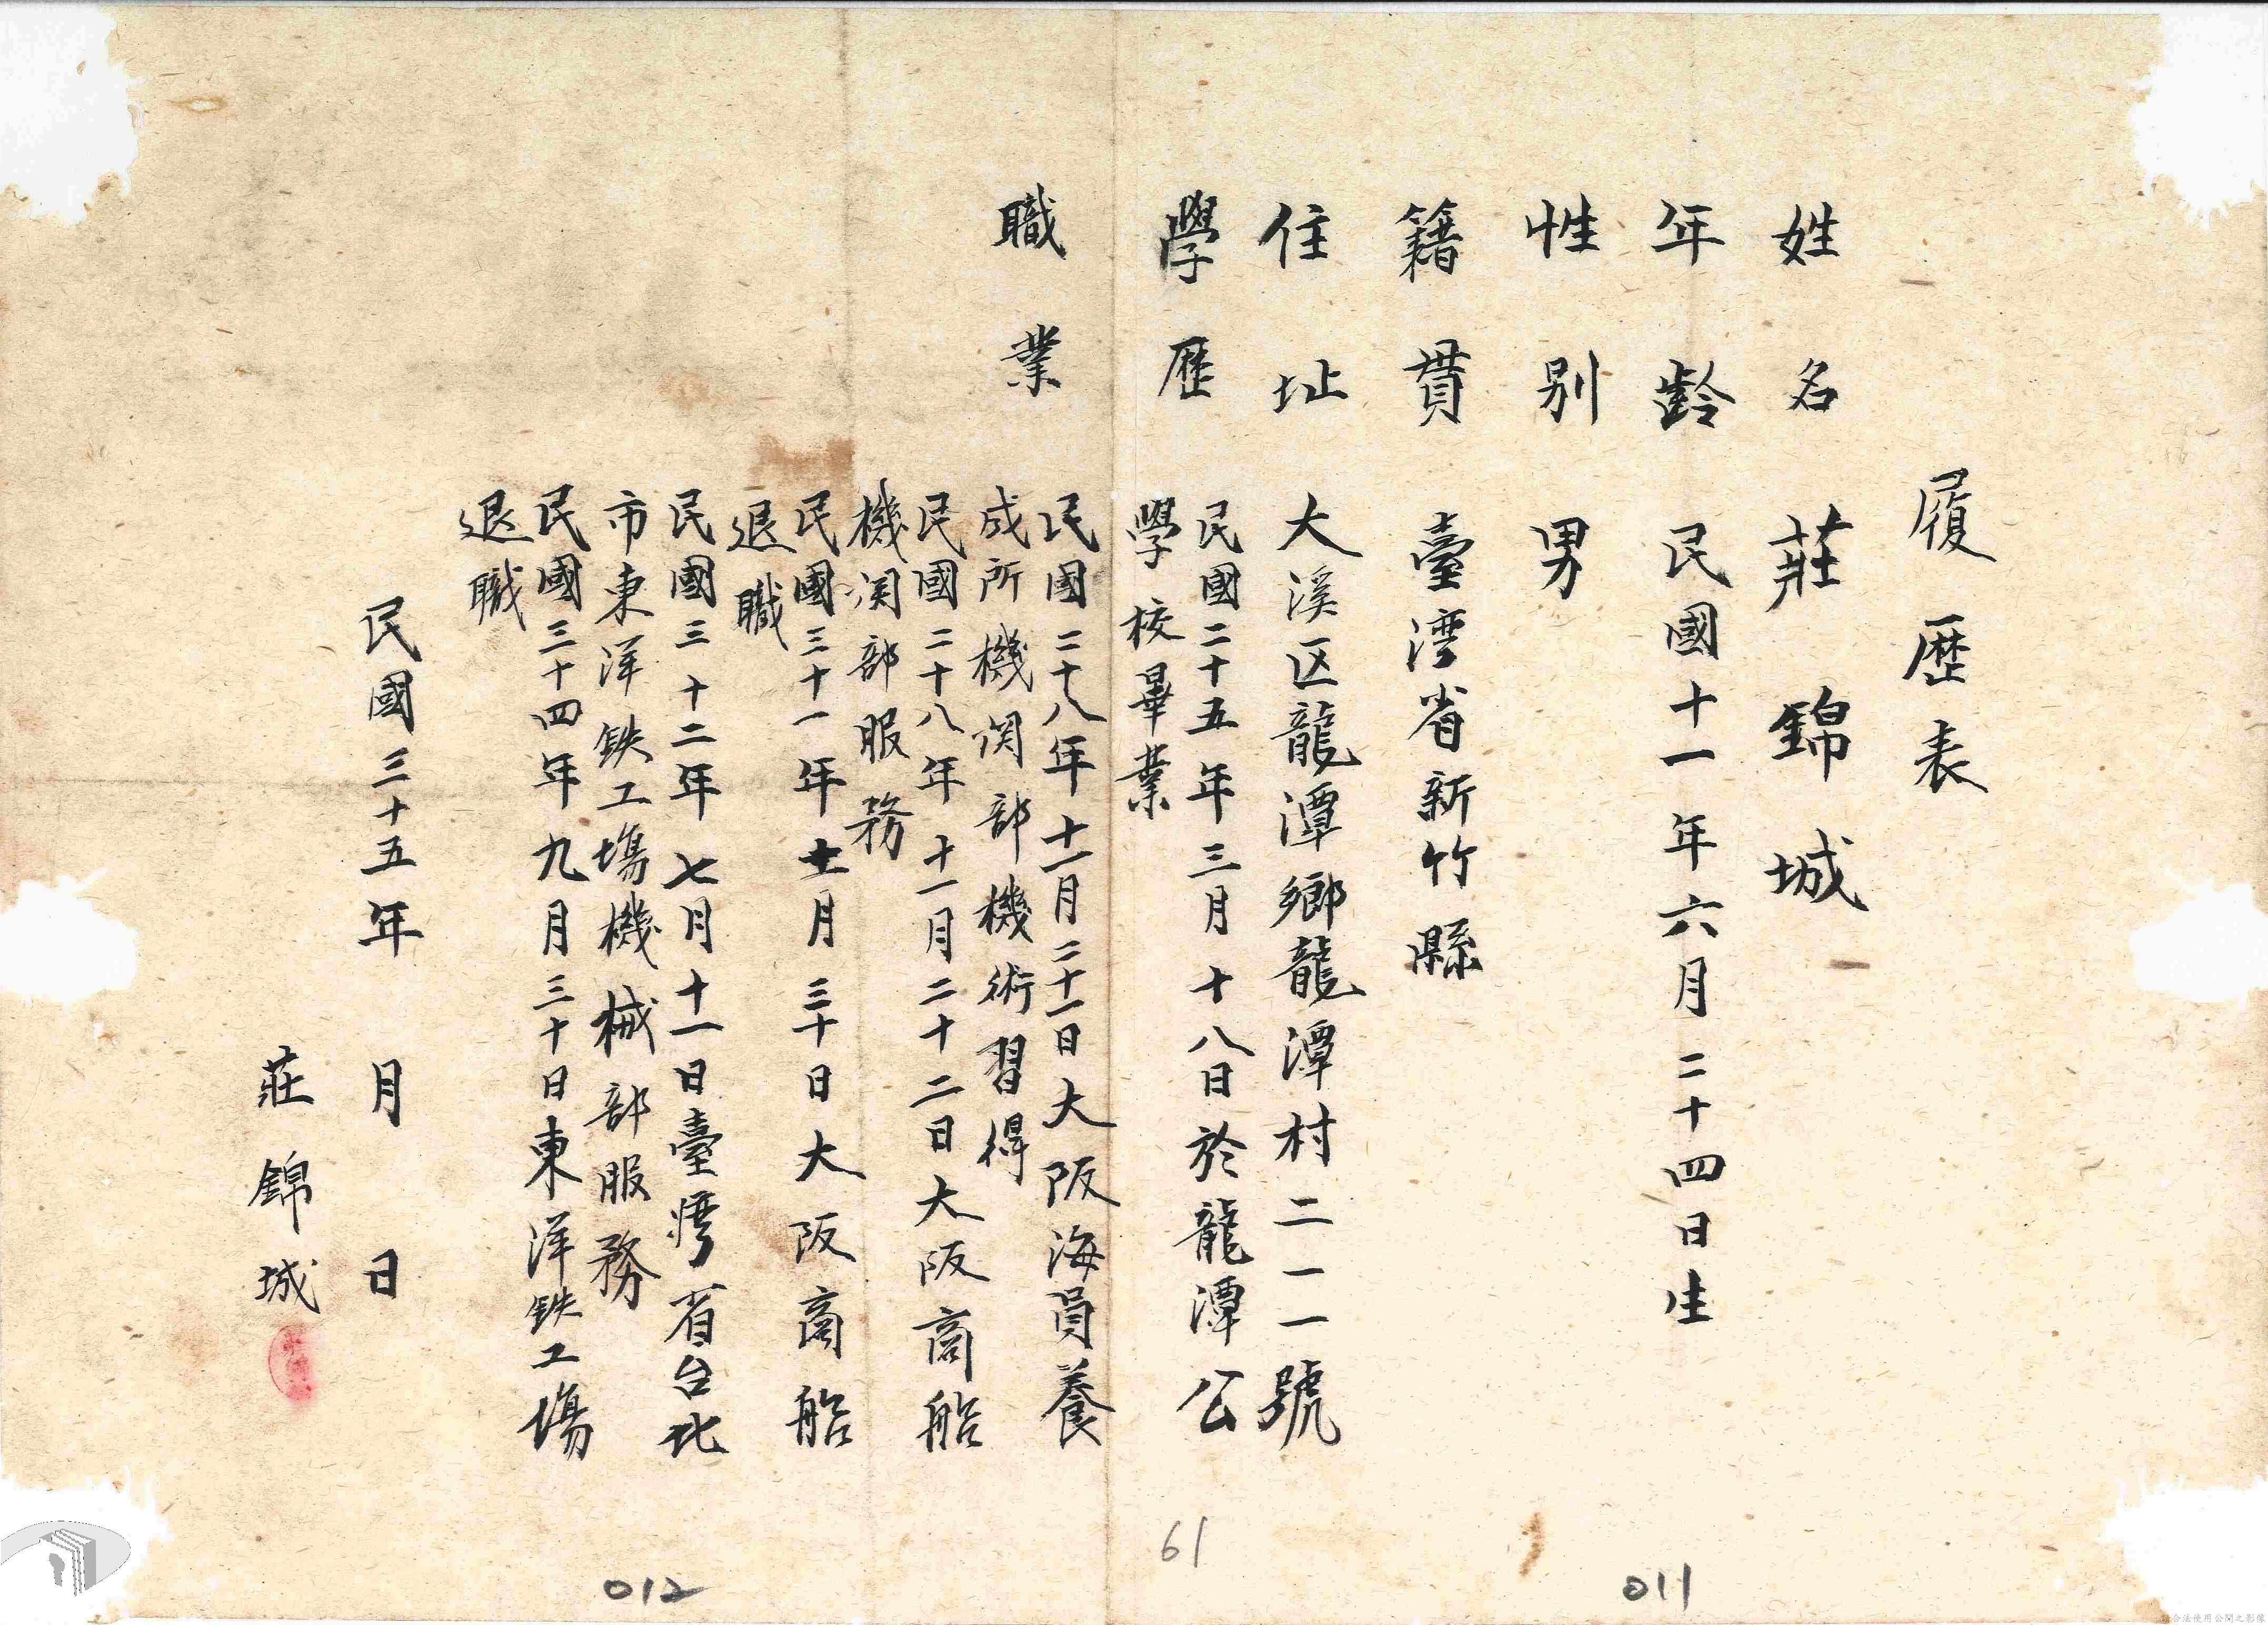 履歷表
姓名 莊錦城
年齡 民國十一年六月二十四日生
性別 男
籍貫 臺湾省新竹縣
住址 大溪区龍潭鄉龍潭村二一一號
學歷 民國二十五年三月十八日於龍潭公
學校畢業
職業 民國二十八年十一月二十一日大阪海員養
成所機関部機術習得
民國二十八年十一月二十二日大阪商船
機関部服務
民國三十一年十一月三十日大阪商船
退職
民國三十二年七月十一日臺湾省台北
市東洋鉄工場機械部服務
民國三十四年九月三十日東洋鉄工場
退職
民國三十五年 月 日
莊錦城
61
011
012
合法使用公開之影像